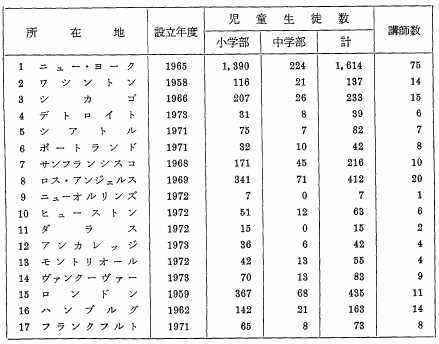 所在地 設立年度 児童生徒数 講師数
小学部 中学部 計
1 ニュー・ヨーク 1965 1,390 224 1,614 75
2 ワシントン 1958 116 21 137 14
3 シカゴ 1966 207 26 233 15
4 デトロイト 1973 31 8 39 6
5 シアトル 1971 75 7 82 7
6 ポートランド 1971 32 10 42 8
7 サンフランシスコ 1968 171 45 216 10
8 ロス・アンジェルス 1969 341 71 412 20
9 ニューオルリンズ 1972 7 0 7 1
10 ヒューストン 1972 51 12 63 6
11 ダラス 1972 15 0 15 2
12 アンカレッジ 1973 36 6 42 4
13 モントリオール 1972 42 13 55 4
14 ヴァンクーヴァー 1973 70 13 83 9
15 ロンドン 1959 367 68 435 11
16 ハンブルグ 1962 142 21 163 14
17 フランクフルト 1971 65 8 73 8